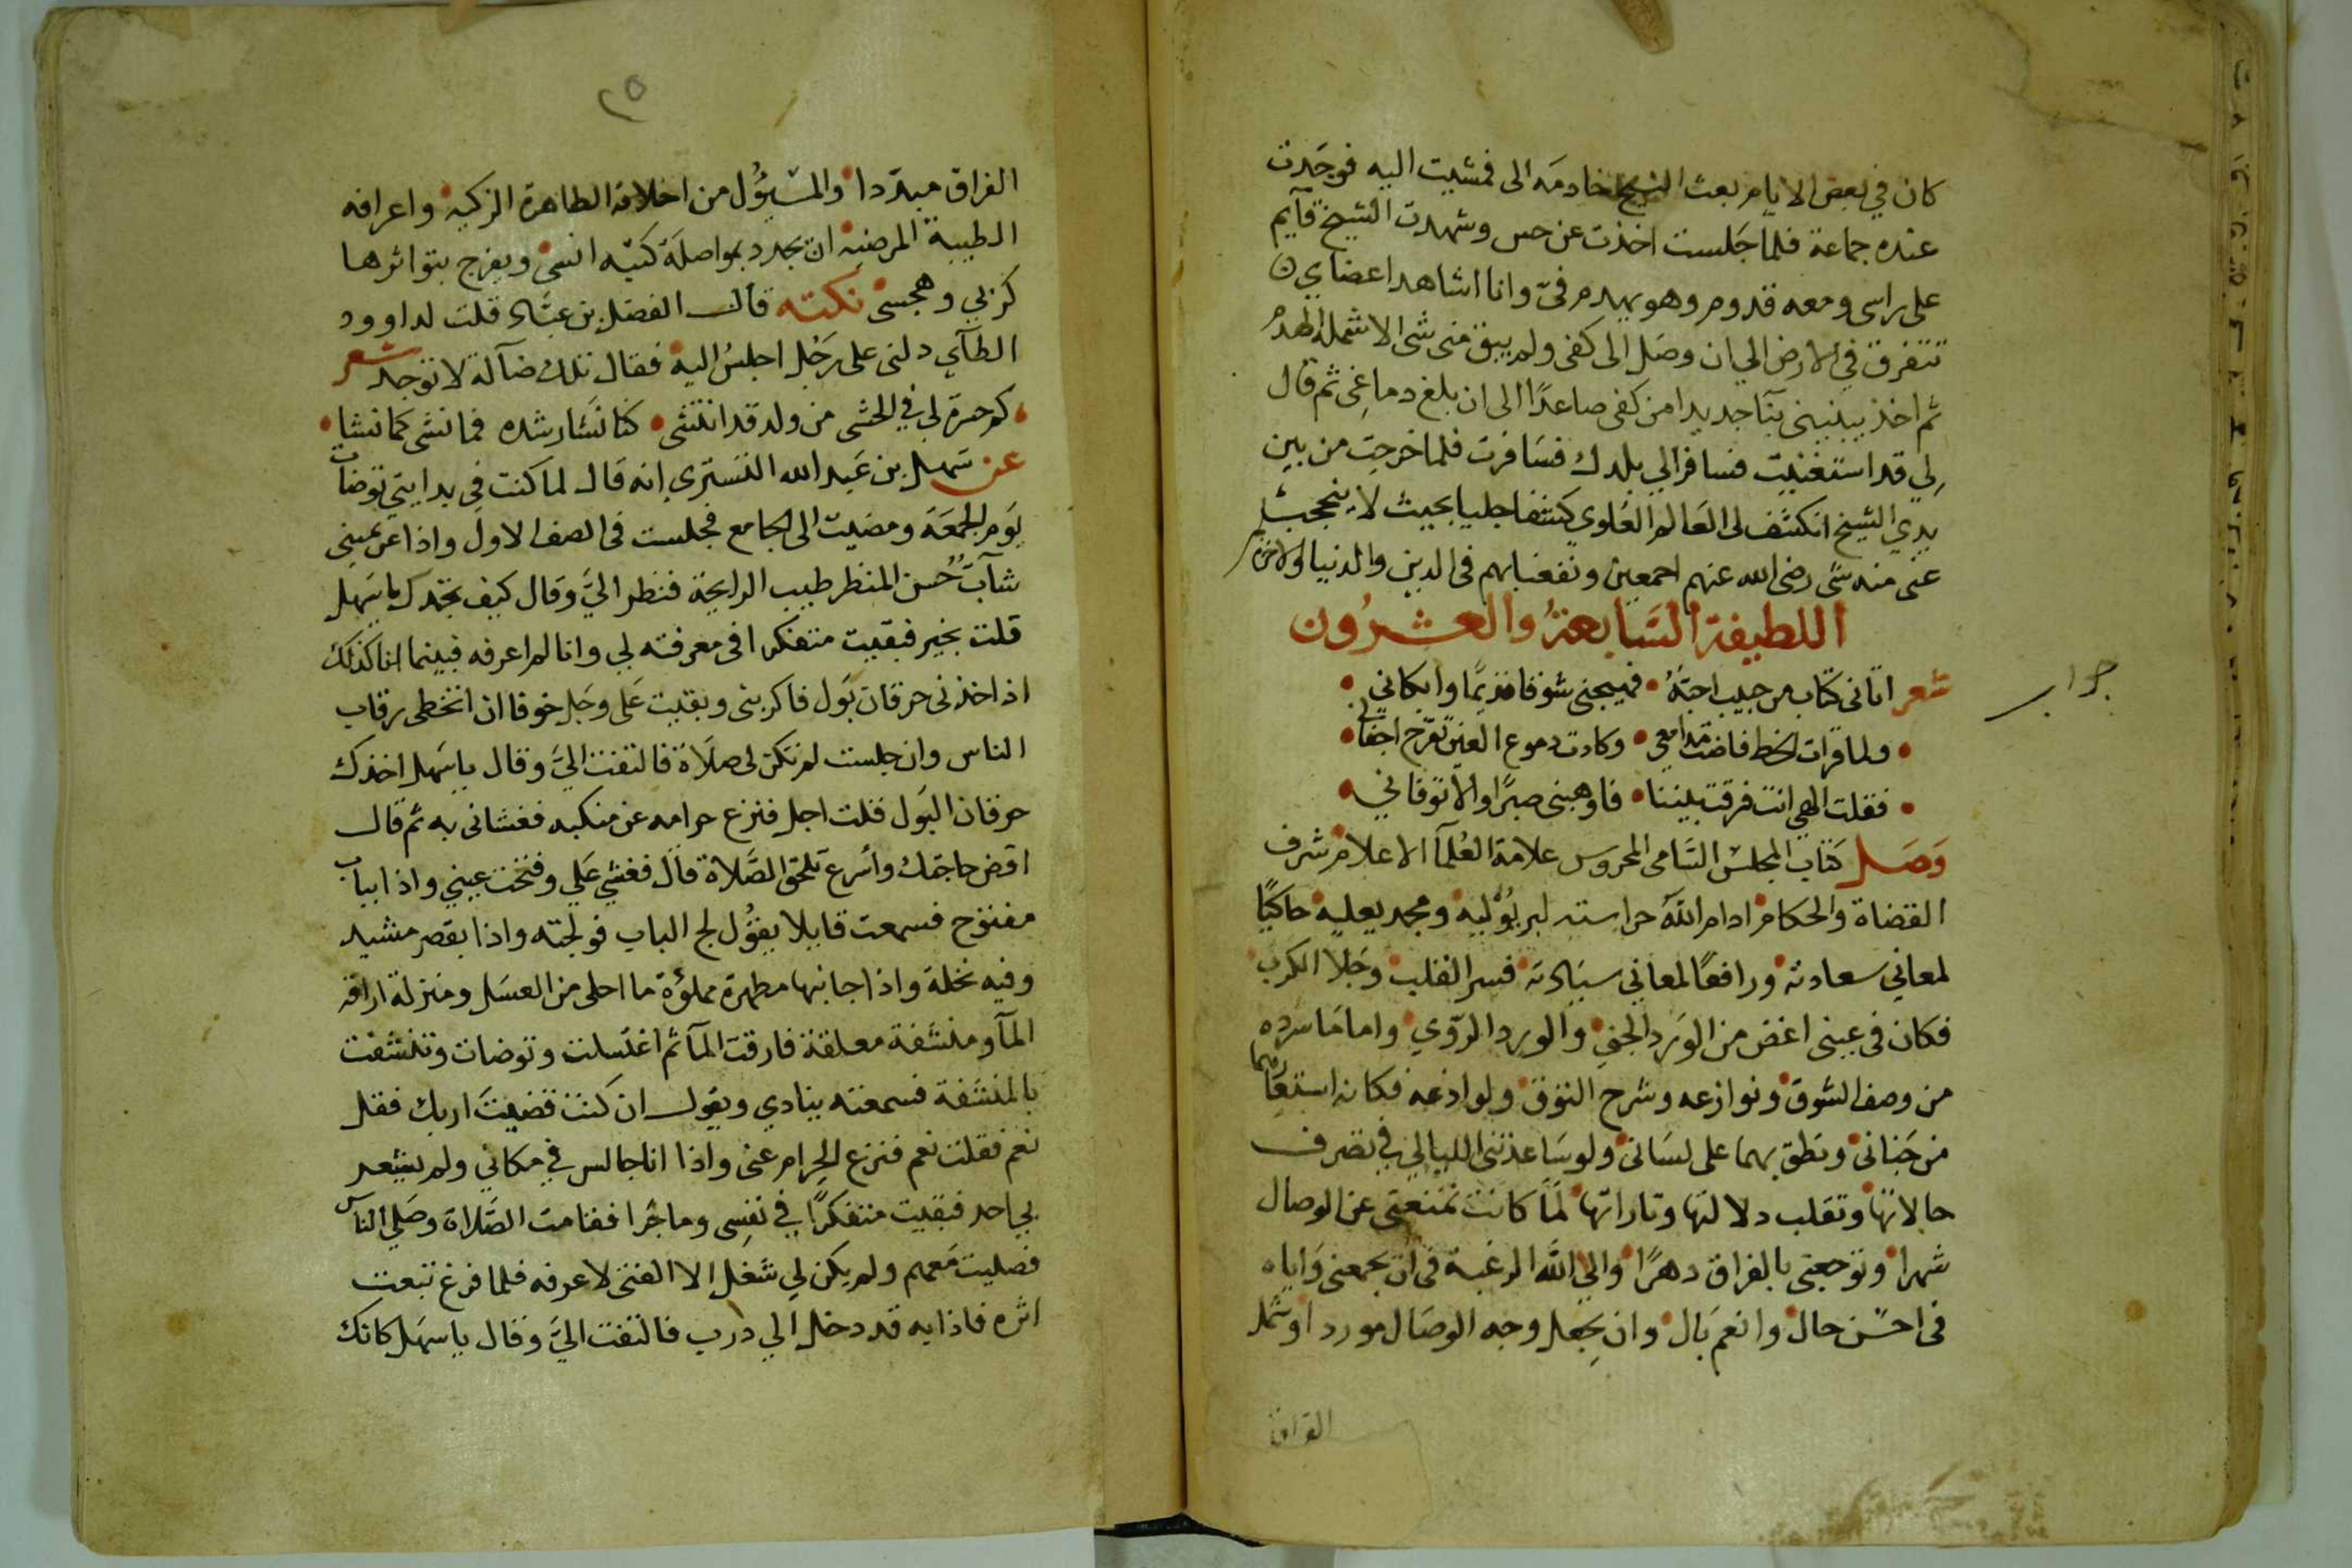 كان في بعض الايام بعث الشيخ خادمه الى فمشيت اليه فوجدت
عنده جماعة فلما جلست اخذت عن حس وشهدت الشيخ قآيم
على راسى ومعه قدوم وهو يهدم فىّ وانا اشاهد اعضاي
تتفرق في الارض الي ان وصل الى كفى ولم يبق منى شى الا شمله الهدم
ثم اخذ يبنينى بنآ جديدا من كفى صاعدًا الى ان بلغ دماغى ثم قال
لي قد استغنيت فسافر الي بلدك فسافرت فلما خرجت من بين
يدي الشيخ انكشف لى العالم العلوي كشفا جليا بحيث لا ينحجب
عنى منه شى رضى الله عنهم اجمعين ونفعنا بهم فى الدين والدنيا والاخرة
اللطيفة السابعة والعشرون
جواب
شعر اتانى كتاب من حبيب احبّهُ • فهيجنى شوقا قديمًا وابكاني •
• ولما قرات الخط فاضت مدامعي • وكادت دموع العين تقرّح اجفاني •
• فقلت الهي انت فرقت بيننا • فاوهبنى صبرًا والا توفاني •
وصل كتاب المجلس السامى المحروس علامة العُلمآ الاعلام شرف
القضاة والحكام ادام اللهُ حراسته لبر يُوْليه ومجد يعليه حاكيًا
لمعاني سعادته ورافعًا لمعاني سيادته فسر القلب وجلا الكرب
فكان فى عينى اغض من الورد الجني والورد الرّوي واما ما سرده
من وصف الشوق ونوازعه وشرح التوق ولواذعه فكانه استعارهما
من جَنانى ونطق بهما على لسانى ولو ساعدتنى الليالي في تصرف
حالاتها وتقلب دلالتها وتاراتها لَما كانت تمنعنى عن الوصال
شهرا وتوجعنى بالفراق دهرًا والي الله الرغبة فى ان يجمعنى واياه
فى احسن حال وانعم بال وان يجعل وجه الوصال موردا وشمل
الفراق
٢٥
الفراق مبدّدا والمسؤُل من اخلاقه الطاهرة الزكيه واعرافه
الطيبة المرضيه ان يجدد بمواصلة كتبه انسى ويفرج بتواترها
كربي وهجسى نكته قال الفضل بن عيّاد قلت لداوود
الطآي دلنى على رَجُل اجلسُ اليه فقال تلك ضآلة لا توجد شعر
• كم حسرة لي في الحشى من ولد قد انتشى • كنا نشا رشده فما نشى كما نشا •
عن سهل بن عبد الله التسترى انه قال لما كنت في بدايتي توضات
يوم الجمعة ومضيت الى الجامع فجلست فى الصف الاول واذا عن يمينى
شآب حُسن المنظر طيب الرايحة فنظر اليَّ وقال كيف تجدك يا سهل
قلت بخير فبقيت متفكرا فى معرفته لي وانا لم اعرفه فبينما انا كذلك
اذ اخذنى حرقان بَول فاكربنى وبقيت على وجل خوفا ان اتخطى رقاب
الناس وان جلست لم تكن لى صلاة فالتفت اليَّ وقال يا سهل اخذك
حرقان البول قلت اجل فنزع حرامه عن منكبه فغشانى به ثم قال
اقض حاجتك واسرع تلحق الصّلاة قال فغشي علي وفتحت عيني واذا بباب
مفتوح فسمعت قايلا يقول لج الباب فولجته واذا بقصر مشيد
وفيه نخلة واذا جانبها مطهرة مملؤة ما احلى من العسل ومنزلة اراقه
المآ ومنشفة معلقة فارقت المآ ثم اغتسلت وتوضات وتنشفت
بالمنشفة فسمعته ينادي ويقول ان كنت قضيت اربك فقل
نعم فقلت نعم فنزع الحرام عنى واذا انا جالس في مكاني ولم يشعر
بي احد فبقيت متفكرًا في نفسى وما جُرا فقامت الصّلاة وصلى الناس
فصليت معهم ولم يكن لي شغل الا الفتى لاعرفه فلما فرغ تبعت
اثره فاذا به قد دخل الي درب فالتفت اليَّ وقال يا سهل كانك